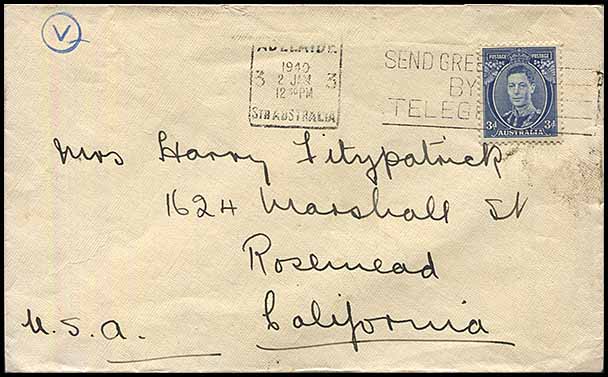 V
ADELAIDE
1940
3 2 JAN 3
12 30 PM
STH AUSTRALIA
SEND GRE
BY
TELEG
POSTAGE POSTAGE
3d 3d
AUSTRALIA
Mrs Harry Fitzpatrick
1624 Marshall St
Rosemead
California
U.S.A.